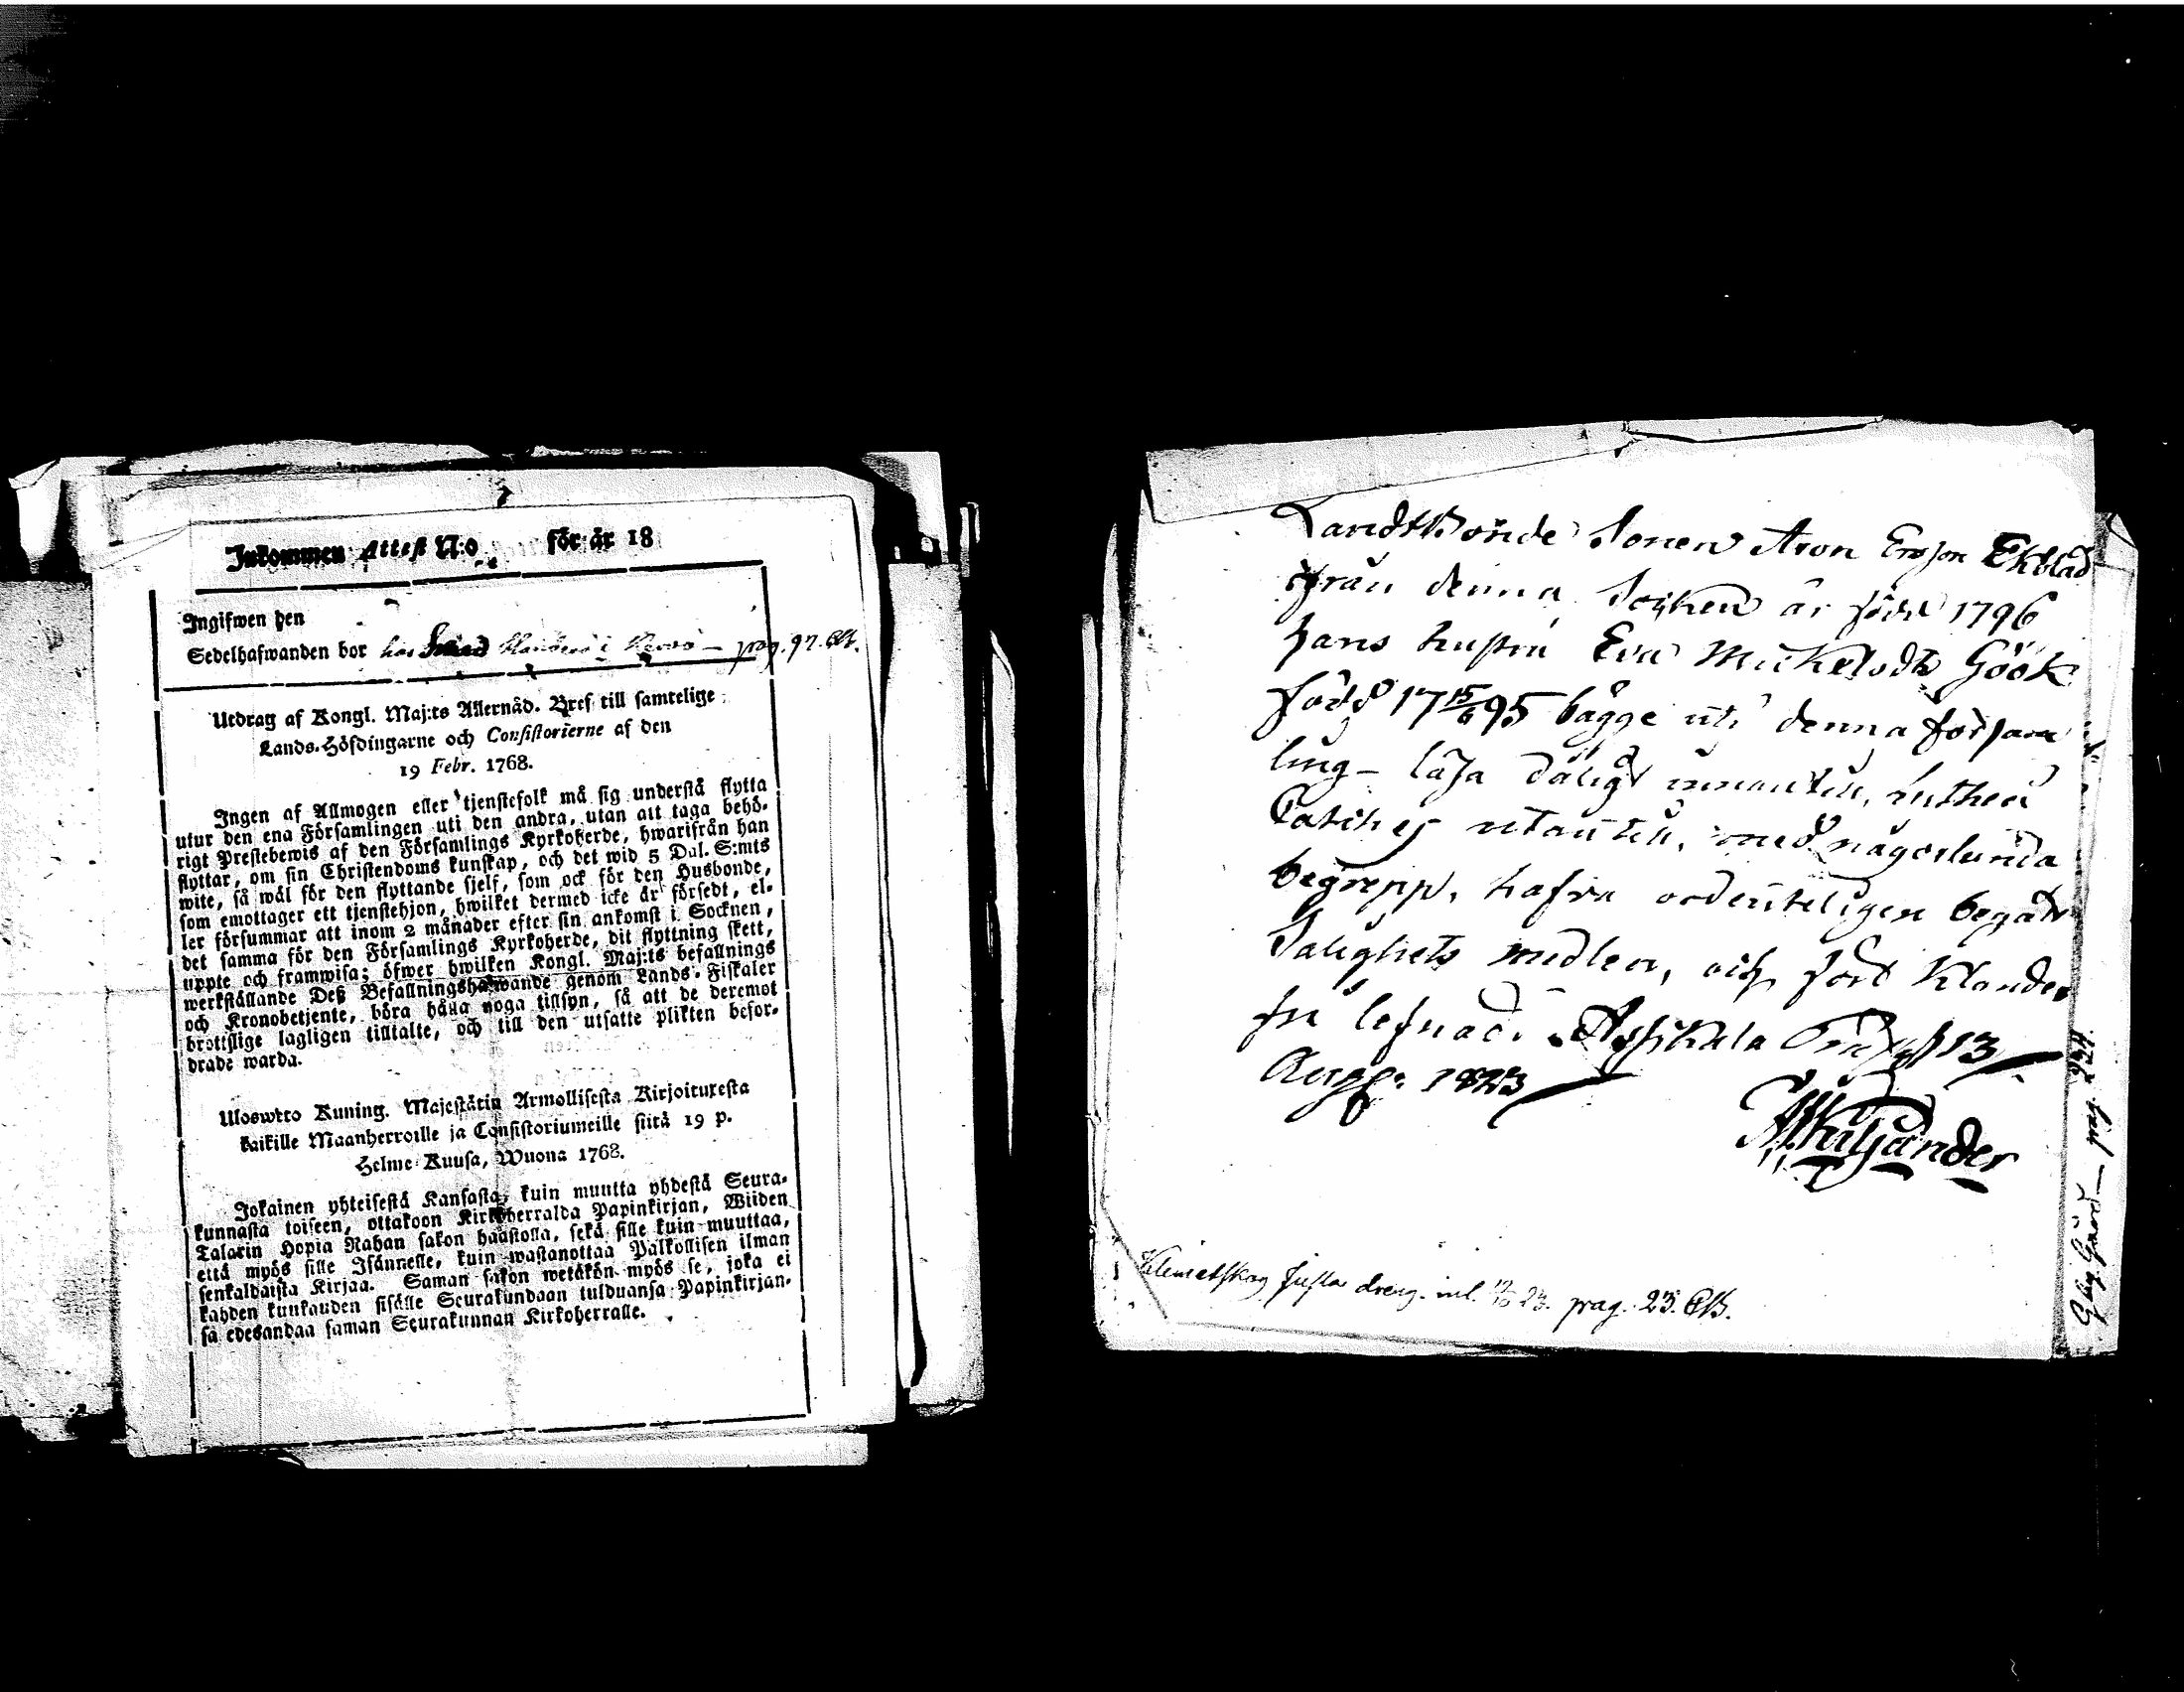 Inkommen Attest N:o för år 18
Ingifwen den
Sedelhafwanden bor hos i pag. 97.
Utdrag af Kongl. Maj:ts Allernåd. Bref till samtelige
Lands-Höfdingarne och Consistorierne af den
19 Febr. 1768.
Ingen af Allmogen eller tjenstefolk må sig understå flytta
utur den ena Församlingen uti den andra, utan att taga behö-
rigt Prestebewis af den Församlings Kyrkoherde, hwarifrån han
flyttar, om sin Christendoms kunskap, och det wid 5 Dal. S:mts
wite, så wäl för den flyttande sjelf, som ock för den Husbonde,
som emottager ett tjenstehjon, hwilket dermed icke är försedt, el-
ler försummar att inom 2 månader efter sin ankomst i Socknen,
det samma för den Församlings Kyrkoherde, dit flyttning skett,
uppte och framwisa; öfwer hwilken Kongl. Maj:ts befallnings
werkställande Deß Befallningshafwande genom Lands-Fiskaler
och Kronobetjente, böra hålla noga tillsyn, så att de deremot
brottslige lagligen tilltalte, och till den utsatte plikten befor-
drade warda.
Uloswetto Kuning. Majestätin Armollisesta Kirjoituxesta
kaikille Maanherroille ja Consistoriumeille siitä 19 p.
Helme Kuusa, Wuona 1768.
Jokainen yhteisestä Kansasta, kuin muutta yhdestä Seura-
kunnasta toiseen, ottakoon Kirkoherralda Papinkirjan, Wiiden
Talarin Hopia Rahan sakon haastolla, sekä sille kuin muuttaa,
että myös sille Isännelle, kuin wastanottaa Palkollisen ilman
senkaldaista Kirjaa. Saman sakon wetäkön myös se, joka ei
kahden kuukauden sisälle Seurakundaan tulduansa Papinkirjan-
sa edesandaa saman Seurakunnan Kirkoherralle.
Landtbonde Sonen Aron Ersson Ekblad
ifrån denna Socken är född 1796
hans hustru Eva Mickelsdr Göök
född 17 15/6 95 bägge uti denna försam
ling - läsa dåligt innantill, Lutheri
Catches utantill, med någorlunda
begrepp, hafva ordenteligen begådt
Salighets medlen, och fört klander
fri lefnad. Asikkala Prästgd 13
Aug. 1823
Klemetskog Gustaf dreng. inl. 23. pag. 23.